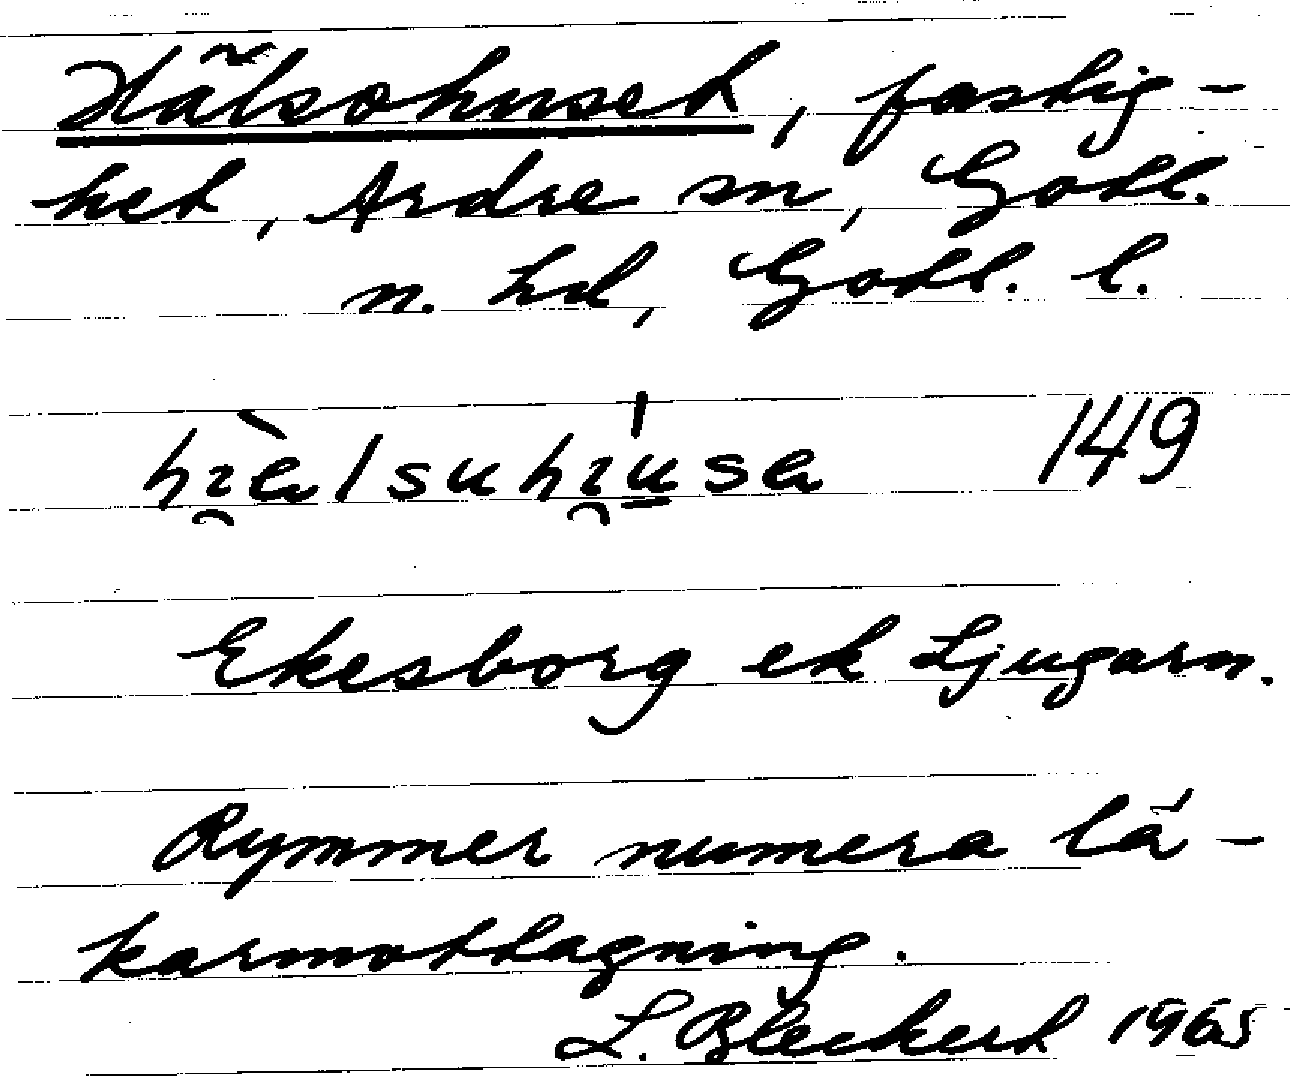 Hälsohuset, fastig-
het, Ardre sn, Gotl.
n. hd, Gotl. l.
hɪ̯æ̀lsuhɪ̯u̱ˈsæ 149
Ekesborg ek Ljugarn.
Rymmer numera lä-
karmottagning.
L. Bleckert 1965